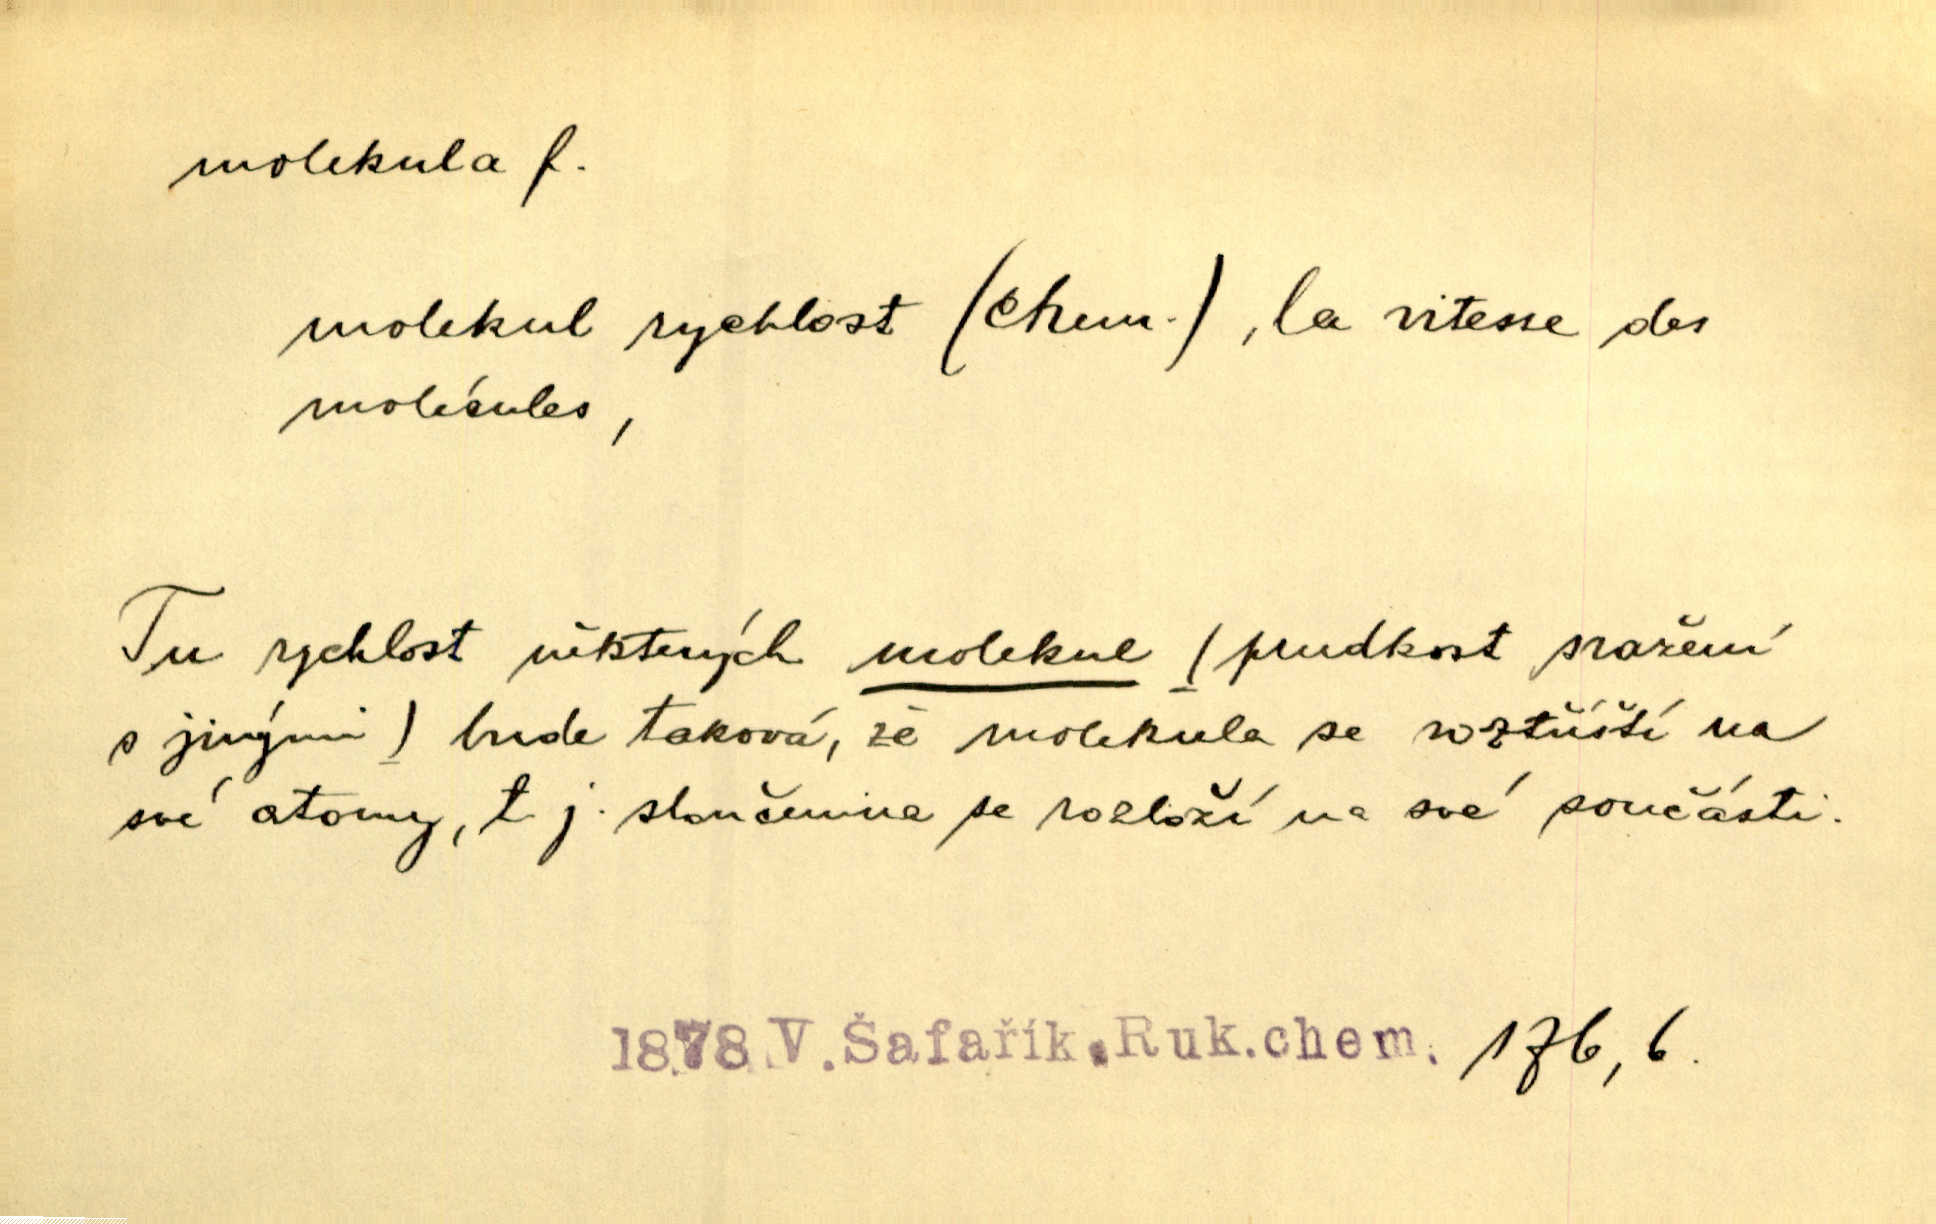 molekula f.
molekul rychlost (chem.), la vitesse des
molécules,
Tu rychlost některých molekul (prudkost sražení
s jinými) bude taková, že molekula se roztříští na
své atomy, t. j. sloučenina se rozloží na své součásti.
1878 V. Šafařík. Ruk. chem. 176, 6.